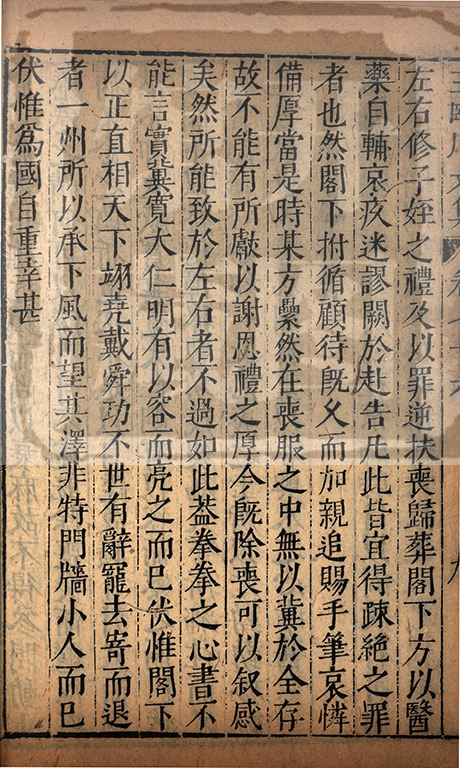 左右修子姪之禮及以罪逆扶喪歸葬閣下方以醫
藥自輔哀疚迷謬闕於赴告凡此皆宜得疎絕之罪
者也然閣下拊循顧待旣久而加親追賜手筆哀憐
備厚當是時某方纍然在喪服之中無以冀於全存
故不能有所獻以謝恩禮之厚今旣除喪可以叙感
矣然所能致於左右者不過如此蓋拳拳之心書不
能言實冀寬大仁明有以容而亮之而已伏惟閣下
以正直相天下翊堯戴舜功不世有辭寵去寄而退
者一州所以承下風而望其澤非特門牆小人而已
伏惟爲國自重幸甚